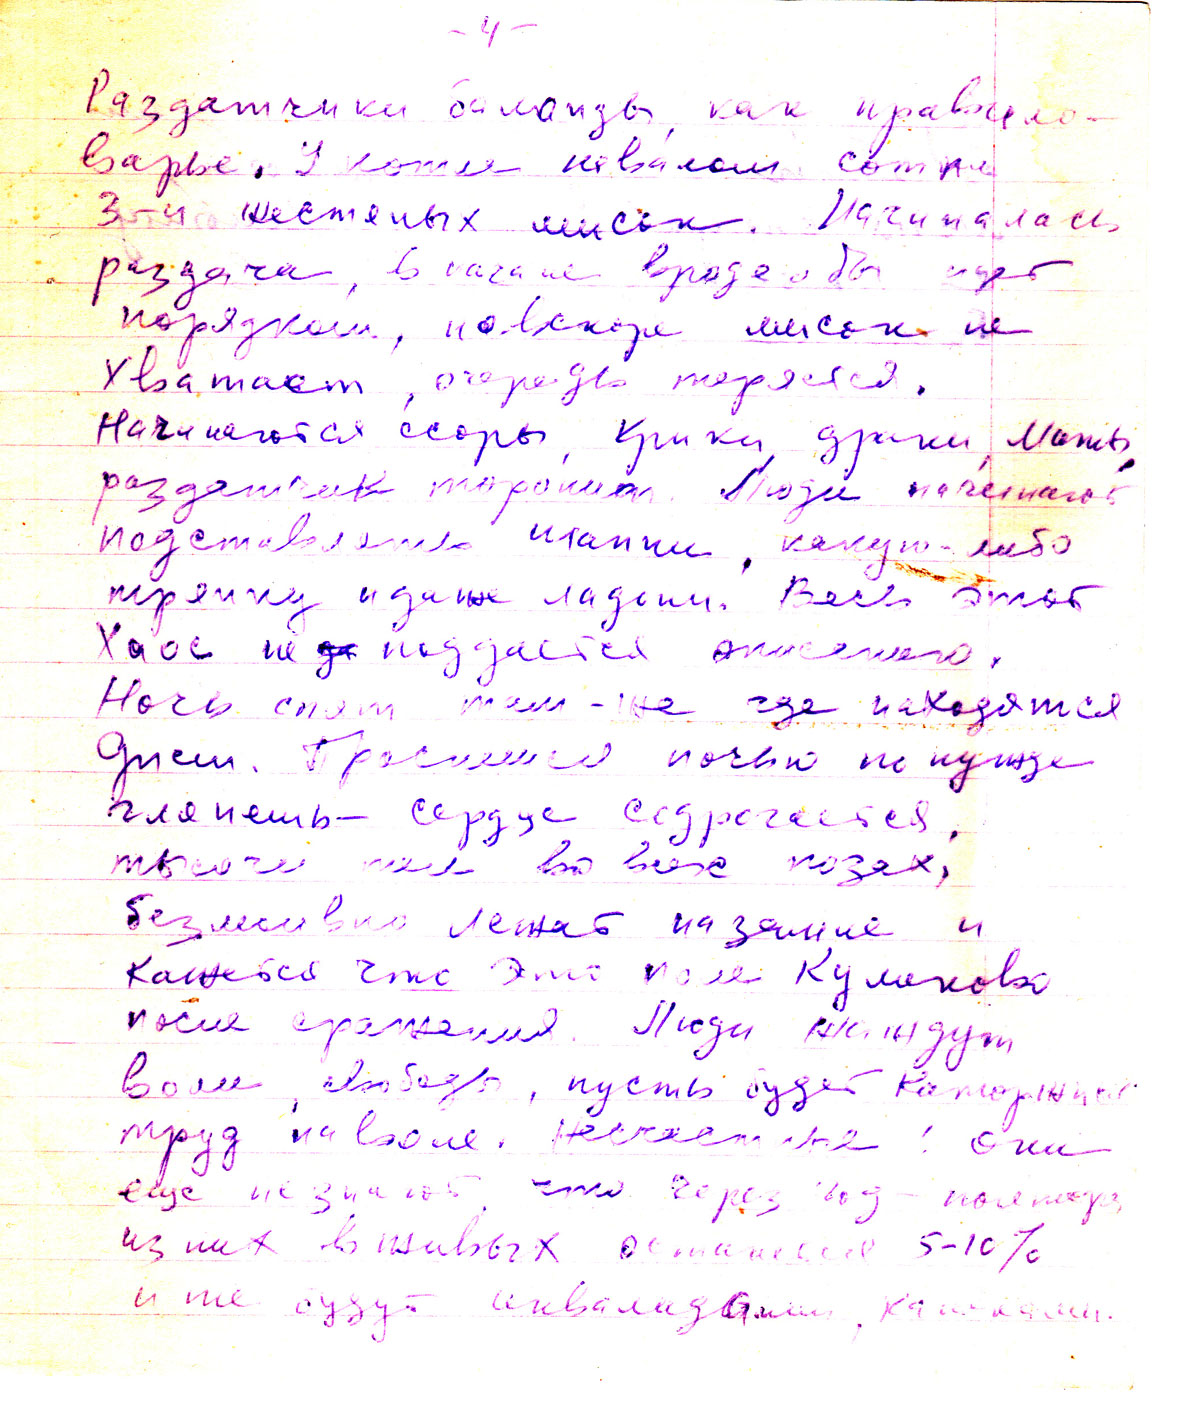 -4-
Раздатчики баланды, как правило-
ворье. У котла навалом сотня
3-и жестяных мисок. Начиналась
раздача, в начале вроде бы идет
порядком, но вскоре мисок не
хватает, очередь теряется.
Начинаются ссоры, крики, драки, маты,
раздатчик торопит. Люди начинают
подставлять шапки, какую-либо
тряпку и даже ладони. Весь этот
Хаос не поддается описанию.
Ночь спят там-же где находятся
Днем. Проснешься ночью по нужде
глянешь- сердце содрогается,
тысячи тел во всех позах,
безмолвно лежат на земле и
кажется что это поле Куликово
после сражения. Люди жаждут
воли, свободы, пусть будет каторжный
труд на воле. Несчастные! они
еще не знают, что через год-полтора
из них в живых останется 5-10%
и те будут инвалидами, калеками.